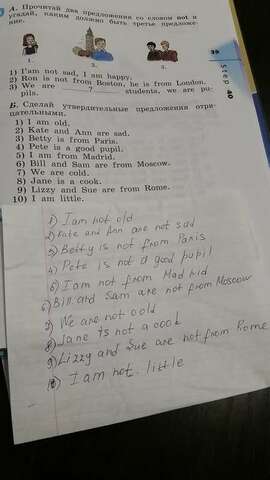 А. Прочитай два предложения со словом not и
угадай, каким должно быть третье предложе-
ние.
1. 2. 3.
1) I'am not sad, I am happy.
2) Ron is not from Boston, he is from London.
3) We are ? students, we are pu-
pils.
Б. Сделай утвердительные предложения отри-
цательными.
1) I am old.
2) Kate and Ann are sad.
3) Betty is from Paris.
4) Pete is a good pupil.
5) I am from Madrid.
6) Bill and Sam are from Moscow.
7) We are cold.
8) Jane is a cook.
9) Lizzy and Sue are from Rome.
10) I am little.
step 40
1) I am not old
2) Kate and Ann are not sad
3) Betty is not from Paris
4) Pete is not a good pupil
I am not from Madrid
6) Bill and Sam are not from Moscow
We are not cold
Jane is not a cook
9) Lizzy and Sue are not from Rome
I am not. little